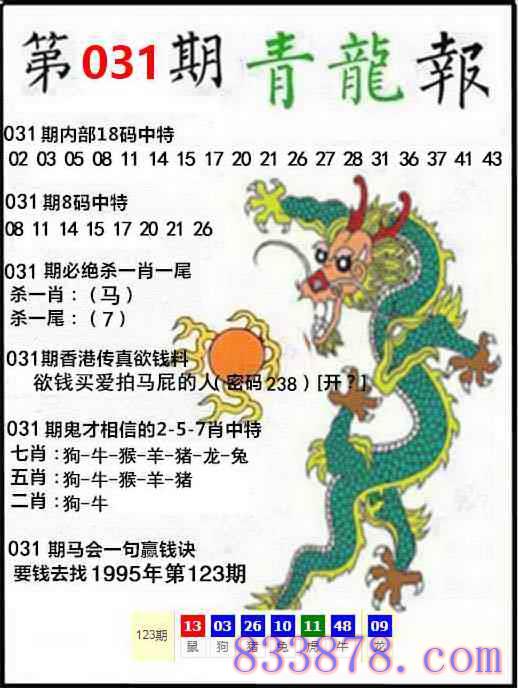 第031期青龍報
031期内部18码中特
02 03 05 08 11 14 15 17 20 21 26 27 28 31 36 37 41 43
031期8码中特
08 11 14 15 17 20 21 26
031 期必绝杀一肖一尾
杀一肖：（马）
杀一尾：（7）
031期香港传真欲钱料
欲钱买爱拍马屁的人(密码238）[开？]
031期鬼才相信的2-5-7肖中特
七肖：狗-牛-猴-羊-猪-龙-兔
五肖：狗-牛-猴-羊-猪
二肖：狗-牛
031 期马会一句赢钱诀
要钱去找1995年第123期
123期 13 03 26 10 11 48 09
鼠 狗 猪 兔 虎 牛 龙
833878.com